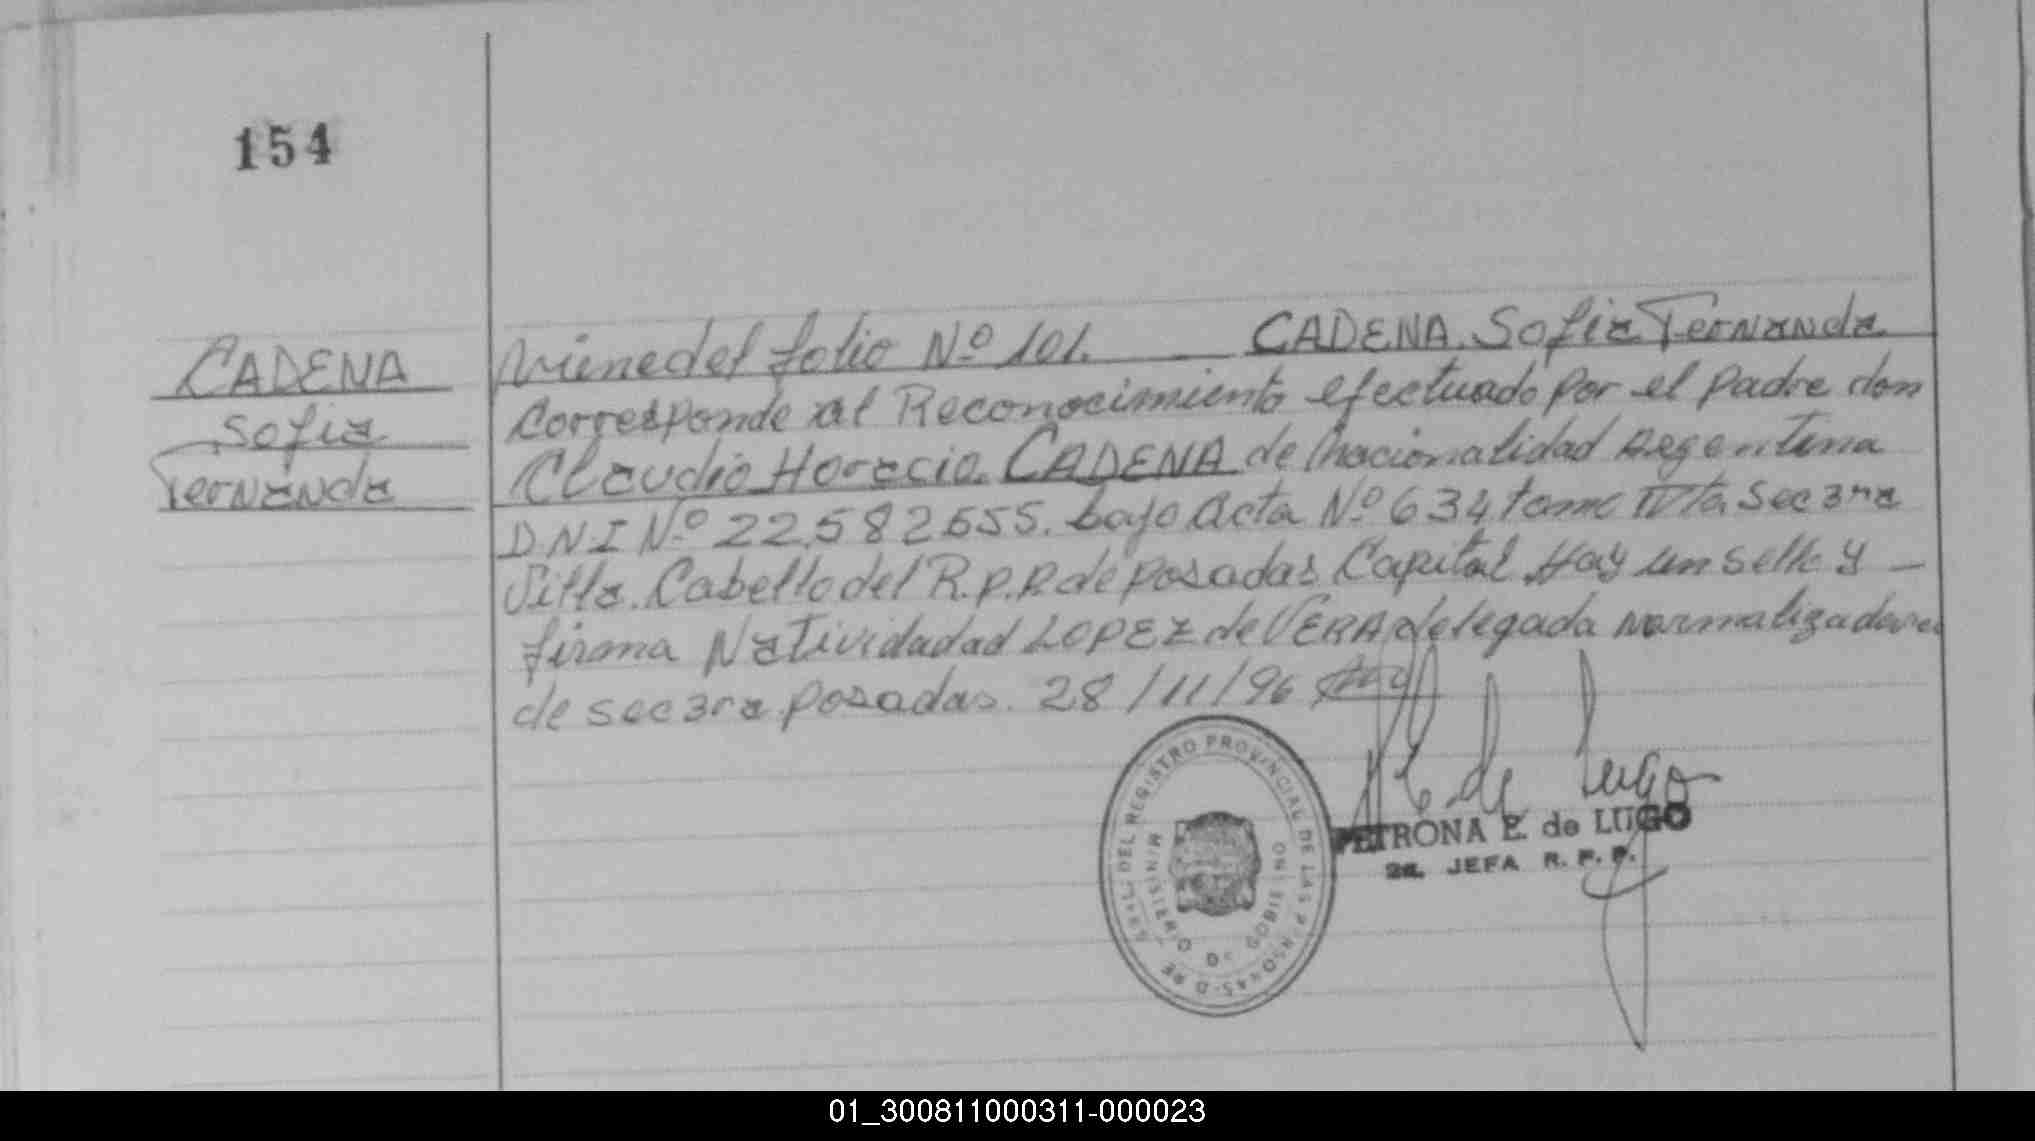 154
CADENA
Sofia
Fernanda
Viene del folio Nº 101. CADENA Sofia Fernanda
corresponde al Reconocimiento efectuado por el padre don
Claudio Horacio CADENA de nacionalidad Argentina
D.N.I Nº 22.582.655. bajo Acta Nº 634 tomo IVto. Sec 3ra
Villa. Cabello del R.P.P. de posadas Capital. Hay un sello y —
firma Natividadad LOPEZ de VERA delegada normalizadora
de sec 3ra posadas. 28/11/96
de Lugo
PETRONA E. de LUGO
2a. JEFA R. P. P.
GRAL. DEL REGISTRO PROVINCIAL DE LAS PERSONAS
MINISTERIO DE GOBIERNO
01_300811000311-000023